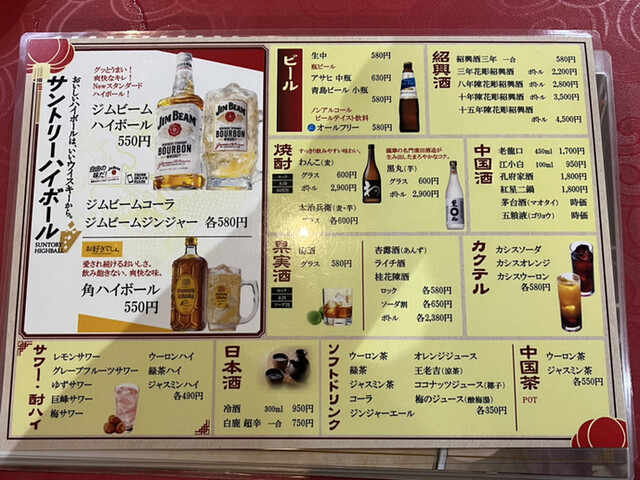 おいしいハイボールは、いいウイスキーから。
サントリーハイボール
SUNTORY
HIGHBALL
グッとうまい！
爽快なキレ！
Newスタンダード
ハイボール！
ジムビーム
ハイボール
550円
JIM BEAM
BOURBON
WHISKEY
JIM BEAM
BOURBON
ジムビームコーラ
ジムビームジンジャー 各580円
愛され続けるおいしさ。
飲み飽きない、爽快な味。
角ハイボール
550円
ビール
生中 580円
瓶ビール
アサヒ 中瓶 630円
青島ビール 小瓶
580円
ノンアルコール
ビールテイスト飲料
オールフリー 580円
紹興酒
紹興酒三年 一合 580円
三年花彫紹興酒 ボトル 2,200円
八年陳花彫紹興酒 ボトル 2,800円
十年陳花彫紹興酒 ボトル 3,500円
十五年陳花彫紹興酒
ボトル 4,500円
焼酎
ロック
水割
お湯割
すっきり飲みやすい味わい。
わんこ(麦)
グラス 600円
ボトル 2,900円
太治兵衛(麦・芋)
グラス 各600円
薩摩の名門濵田酒造が
生み出したまろやかなコク。
黒丸(芋)
グラス 600円
ボトル 2,900円
中国酒
老龍口 450ml 1,700円
江小白 100ml 950円
孔府家酒 1,800円
紅星二鍋 1,800円
茅台酒(マオタイ) 時価
五粮液(ゴリョウ) 時価
果実酒
ロック
水割
ソーダ割
梅酒
グラス 580円
杏露酒(あんず)
ライチ酒
桂花陳酒
ロック 各580円
ソーダ割 各650円
ボトル 各2,380円
カクテル
カシスソーダ
カシスオレンジ
カシスウーロン
各580円
サワー・酎ハイ
レモンサワー
グレープフルーツサワー
ゆずサワー
巨峰サワー
梅サワー
ウーロンハイ
緑茶ハイ
ジャスミンハイ
各490円
日本酒
冷酒 300ml 950円
白鹿 超辛 一合 750円
ソフトドリンク
ウーロン茶
緑茶
ジャスミン茶
コーラ
ジンジャーエール
オレンジジュース
王老吉(涼茶)
ココナッツジュース(椰子)
梅のジュース(酸梅湯)
各350円
中国茶
POT
ウーロン茶
ジャスミン茶
各550円